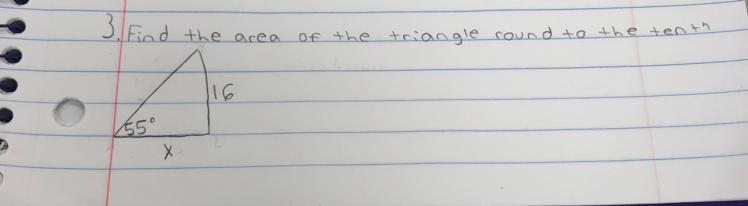 3. Find the area of the triangle round to the tenth
16
55°
x